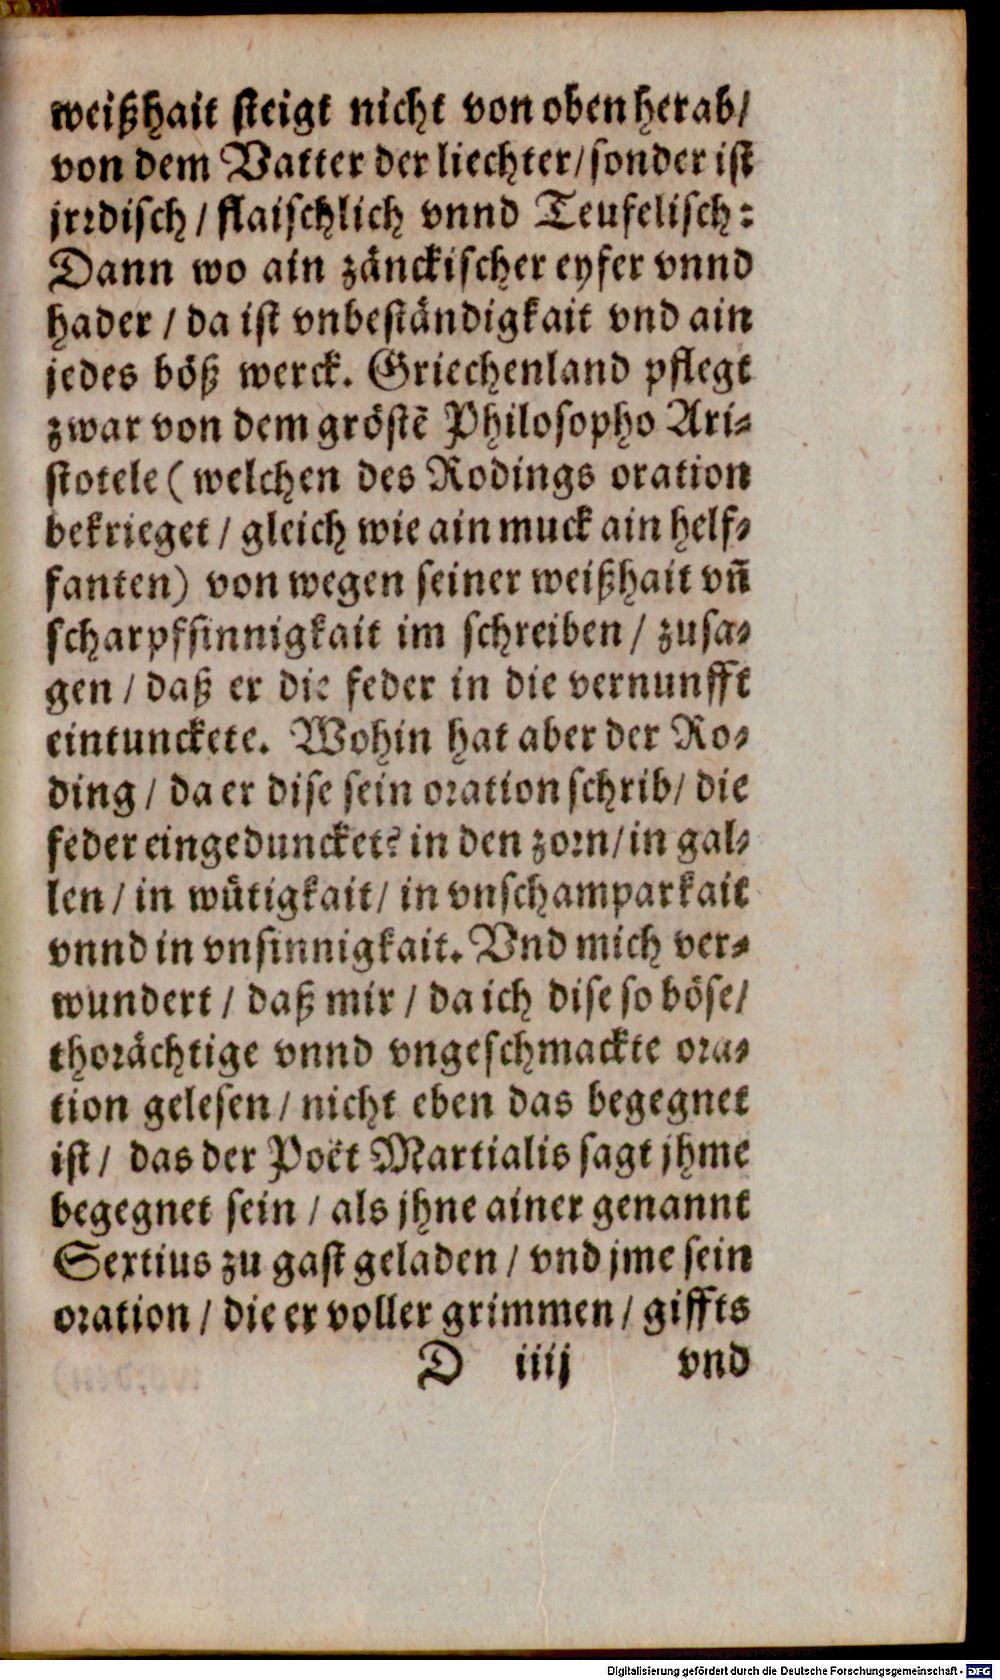 weißhait steigt nicht von oben herab/
von dem Vatter der liechter/ sonder ist
jrrdisch / flaischlich vnnd Teufelisch:
Dann wo ain zänckischer eyfer vnnd
hader / da ist vnbeständigkait vnd ain
jedes böß werck. Griechenland pflegt
zwar von dem gröstẽ Philosopho Ari-
stotele ( welchen des Rodings oration
bekrieget / gleich wie ain muck ain helf-
fanten) von wegen seiner weißhait vñ
scharpfsinnigkait im schreiben / zusa-
gen / daß er die feder in die vernunfft
eintunckete. Wohin hat aber der Ro-
ding / da er dise sein oration schrib/ die
feder eingeduncket? in den zorn/ in gal-
len / in wütigkait/ in vnschamparkait
vnnd in vnsinnigkait. Vnd mich ver-
wundert / daß mir / da ich dise so böse/
thorächtige vnnd vngeschmackte ora-
tion gelesen / nicht eben das begegnet
ist / das der Poët Martialis sagt jhme
begegnet sein / als jhne ainer genannt
Sextius zu gast geladen / vnd jme sein
oration / die er voller grimmen / giffts
D iiij vnd
Digitalisierung gefördert durch die Deutsche Forschungsgemeinschaft - DFG